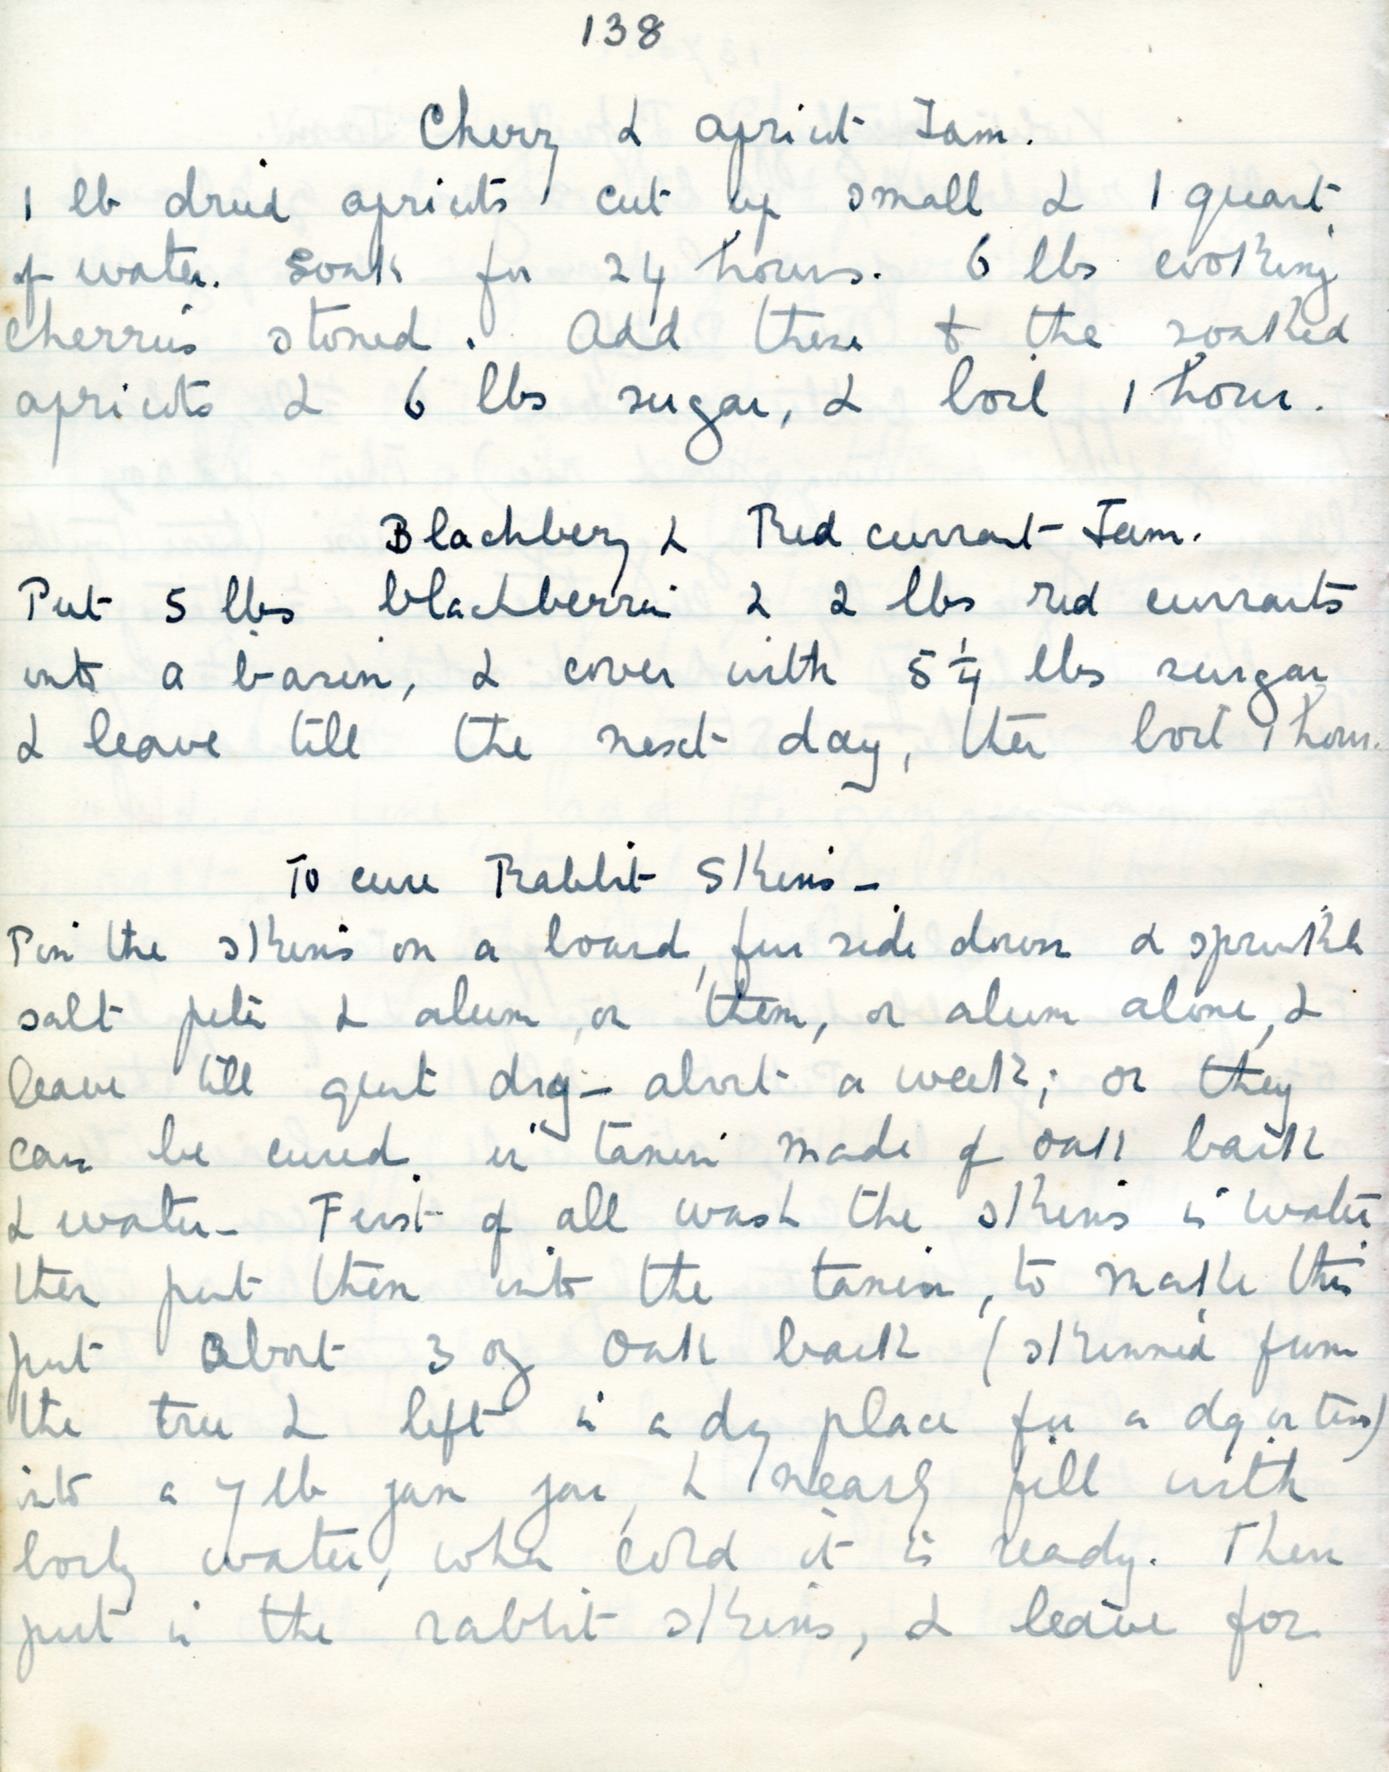 138
Cherry & apricot Jam.
1 lb dried apricots cut up small & 1 quart
of water. Soak for 24 hours. 6 lbs cooking
cherries stoned. Add these to the soaked
apricots & 6 lbs sugar, & boil 1 hour.
Blackberry & Red currant Jam.
Put 5 lbs blackberries & 2 lbs red currants
into a basin, & cover with 5 1/4 lbs sugar
& leave till the next day, then boil 1 hour.
To cure Rabbit Skins -
Pin the skins on a board, fur side down & sprinkle
salt petre & alum on them, or alum alone, &
leave till quit dry - about a week; or they
can be cured in tanin made of oak bark
& water - First of all wash the skins in water
then put them into the tanin, to make this
put about 3 oz oak bark (skinned from
the tree & left in a dry place for a day or two)
into a 7 lb jam jar, & nearly fill with
boilg water, when cold it is ready. Then
put in the rabbit skins, & leave for